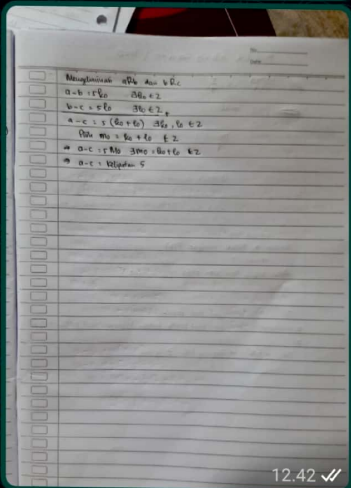 aRb dan bRc
a-b = 5k₀ ∃k₀ ∈ Z
b-c = 5l₀ ∃l₀ ∈ Z,
a-c = 5 (k₀ + l₀) ∃k₀, l₀ ∈ Z
m₀ = k₀ + l₀ ∈ Z
⇒ a-c = 5m₀ ∃m₀ = k₀ + l₀ ∈ Z
⇒ a-c = kelipatan 5
12.42